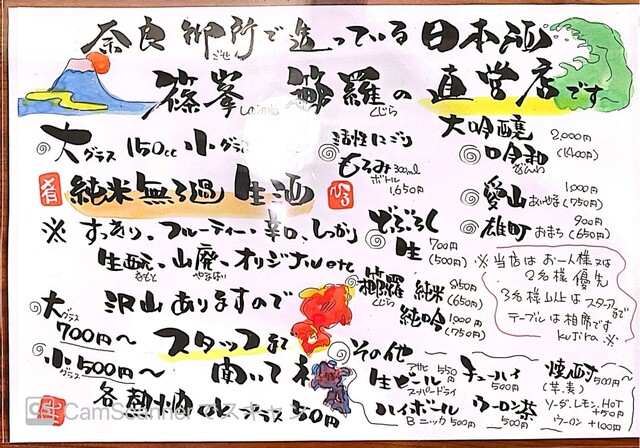 奈良御所で造っている日本酒
ごせ
篠峯 櫛羅の直営店です
くじら
大グラス 150cc 小グラス
純米無ろ過生酒
※ すっきり、フルーティー、辛口、しっかり
生酛、山廃、オリジナルetc
きもと やまはい
大グラス 沢山ありますので
700円~ スタッフまで
小グラス 500円~ 聞いてネ
各熱燗ok プラス50円
活性にごり
もろみ 300ml
ボトル
1,650円
どぶろく
生 700円
(500円)
櫛羅 純米 950円
くじら (650円)
純吟 1,000円
(750円)
大吟醸 2,000円
(1,400円)
愛山 1,000円
あいやま (750円)
雄町 900円
おまち (650円)
※当店はお一人様又は
2名様優先
3名様以上はスタッフまで
テーブルは相席です
kujira ※
その他
生ビール アサヒ 550円
スーパードライ
ハイボール
Bニッカ 500円
チューハイ
500円
ウーロン茶
500円
焼酎 500円~
(芋、麦)
ソーダ、レモン、HOT
+50円
ウーロン +100円
CamScanner でスキャン